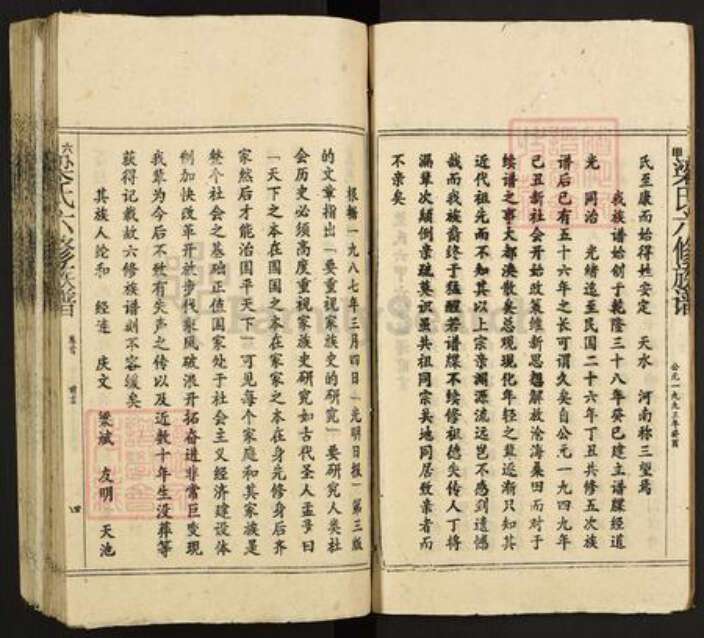 梁氏六修族譜
公元一九九三年癸酉
氏至康而始得姓安定 天水 河南称三望焉
我族谱始创于乾隆三十八年癸巳建立谱牒经道
光 同治 光绪迄至民国二十六年丁丑共修五次族
谱后已有五十六年之长可谓久矣自公元一九四九年
己丑新社会开始政策维新思想解放沧海桑田而对于
续谱之事大都涣散矣总观现化年轻之辈逐渐只知其
近代祖先而不知其以上宗亲渊源流远岂不感到遗憾
哉而我族裔终于猛醒若谱牒不续修祖德失传人丁将
漏辈次颠倒亲疏莫识虽共祖同宗异地同居致亲者而
不亲矣
根据一九八七年三月四日《光明日报》第三版
的文章指出「要重视家族史的研究」要研究人类社
会历史必须高度重视家族史研究如古代圣人孟子曰
「天下之本在国国之本在家家之本在身先修身后齐
家然后才能治国平天下」可见每个家庭和其家族是
整个社会之基础正值国家处于社会主义经济建设体
制加快改革开放步伐乘风破浪开拓奋进非常巨变现
我辈为今后不致有失声之传以及近数十年生没葬等
获得记载故六修族谱刻不容缓矣
其族人纶和 经运 庆文 梁斌 友明 天池
梁氏六修族譜
卷首
四